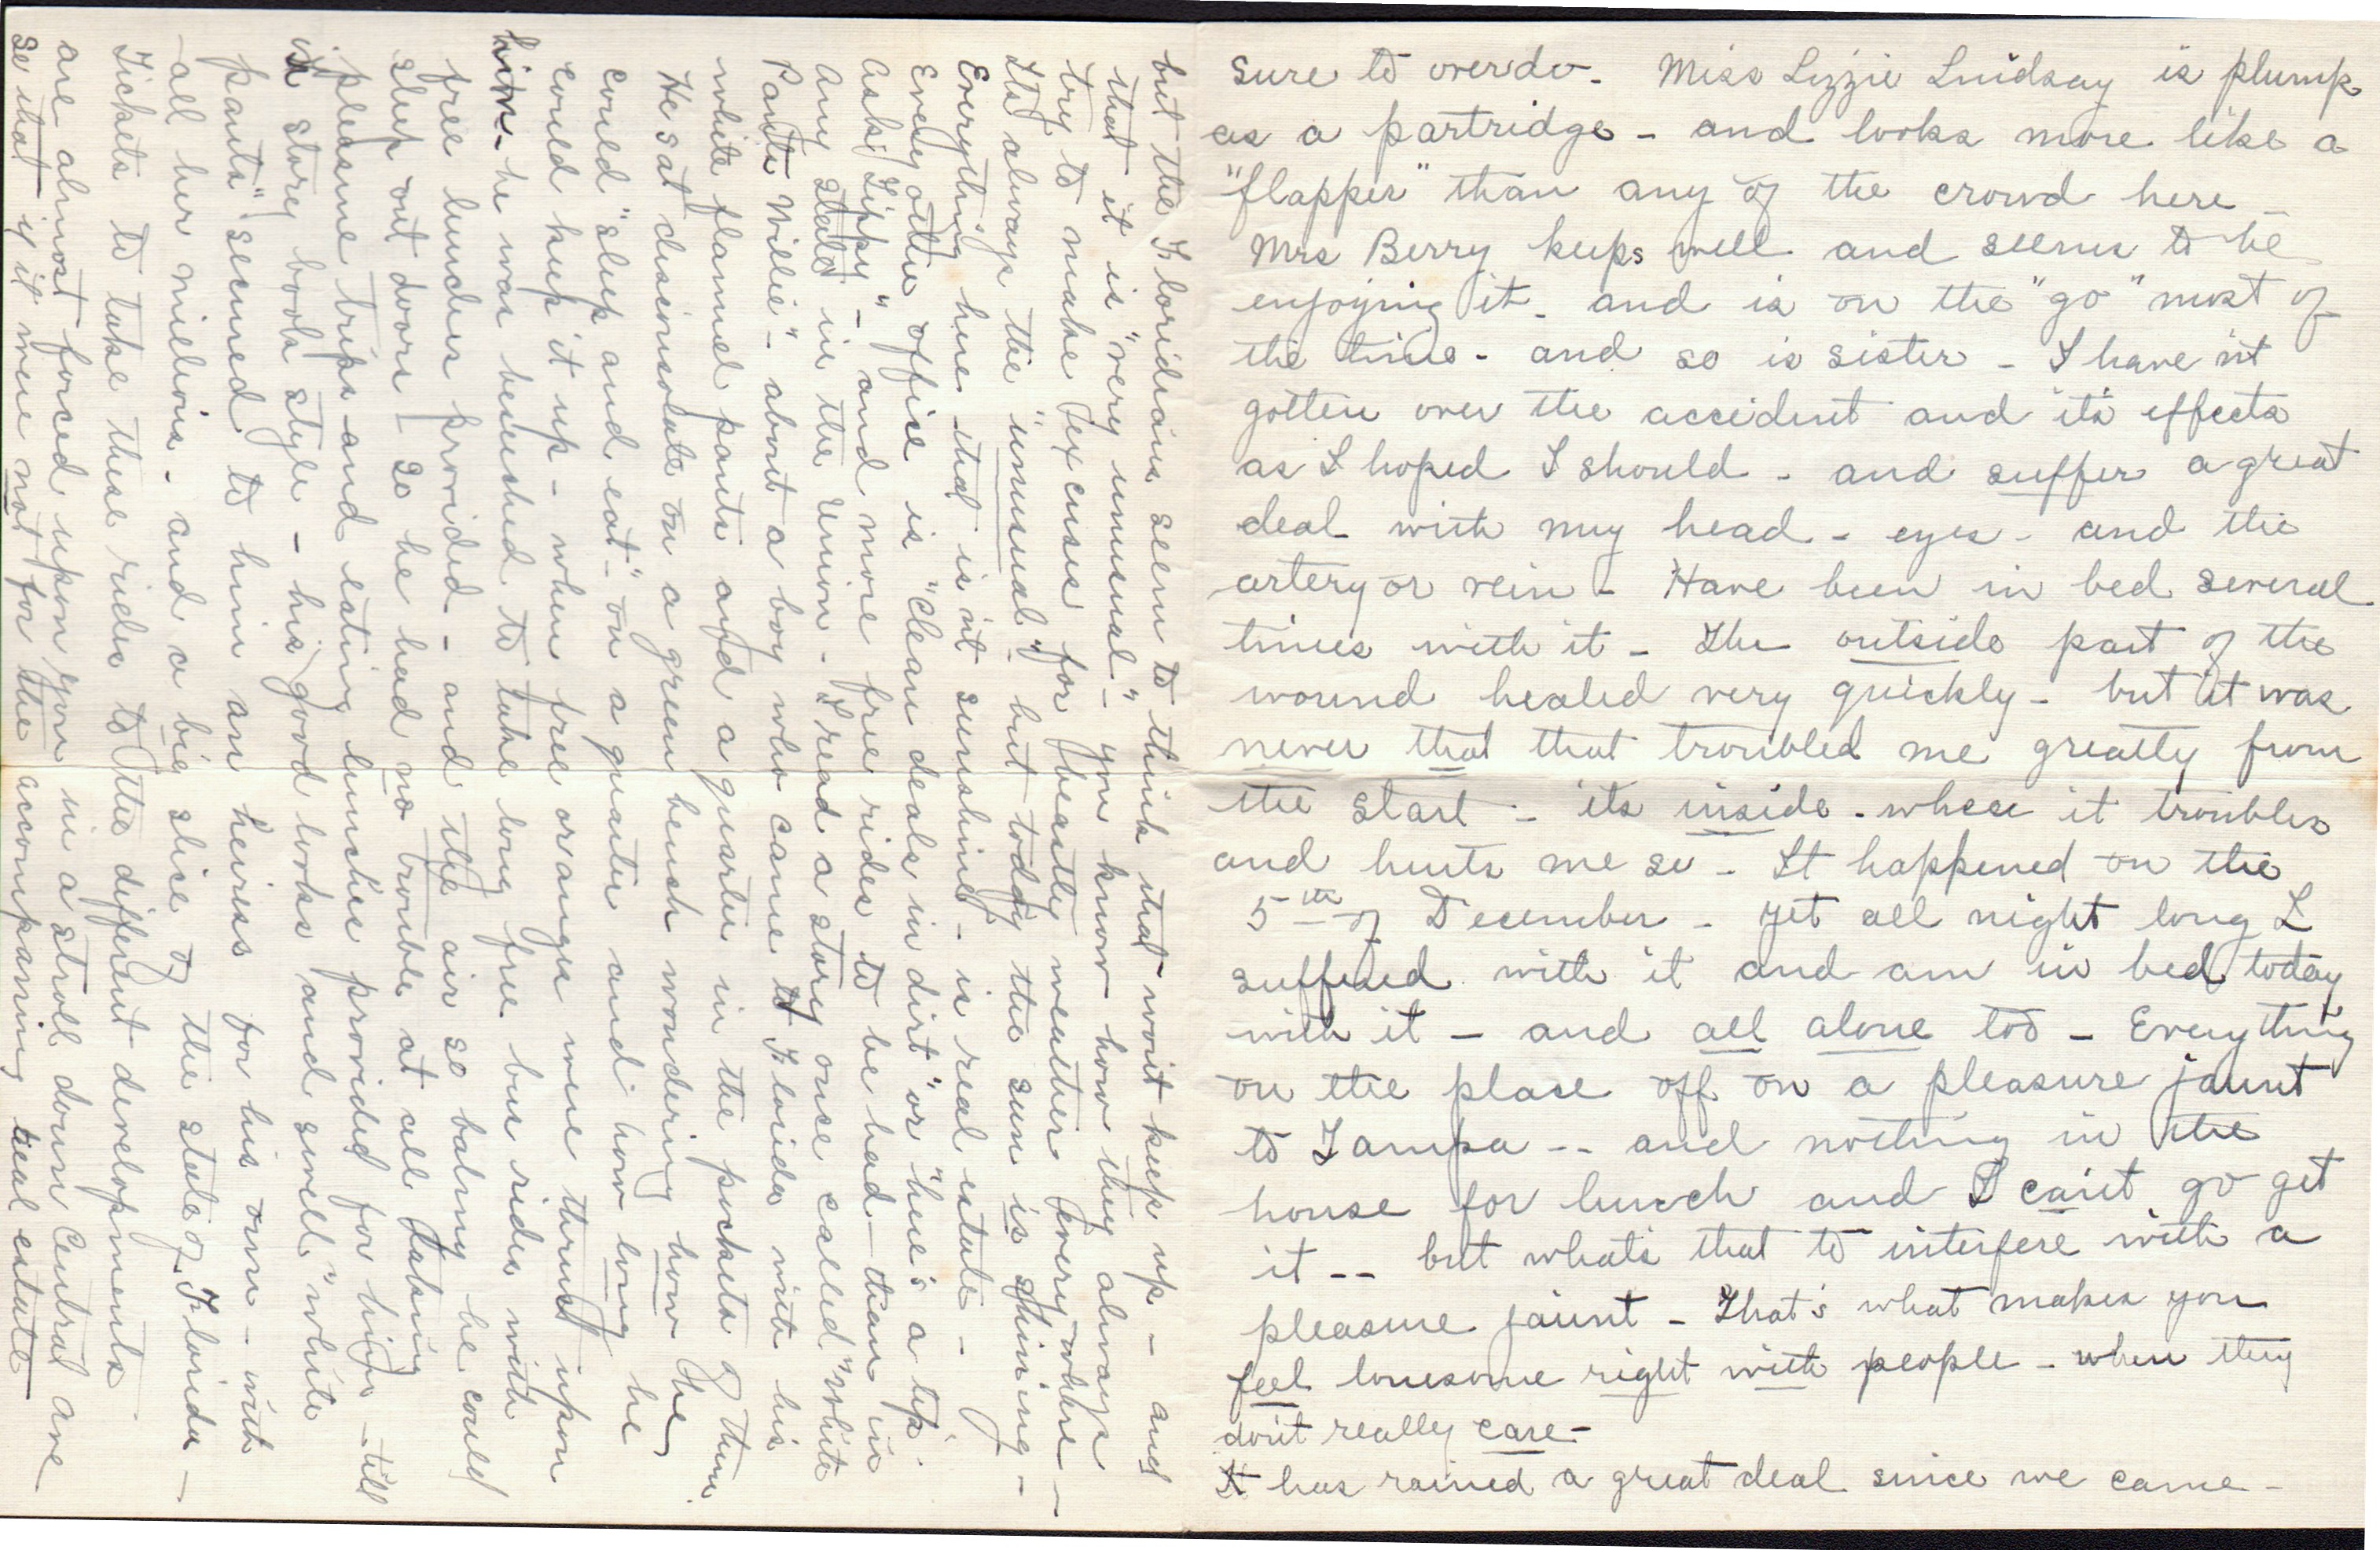 sure to overdo - Miss Lizzie Lindsay is plump
as a partridge - and looks more like a
"flapper" than any of the crowd here -
Mrs Berry keeps well and seems to be
enjoying it - and is on the "go" most of
the time - and so is sister - I have n't
gotten over the accident and it's effects
as I hoped I should - and suffer a great
deal with my head - eyes - and the
artery or vein - Have been in bed several
times with it - The outside part of the
wound healed very quickly - but it was
never that that troubled me greatly from
the start - its inside - where it troubles
and hurts me so - It happened on the
5th of December - yet all night long I
suffered with it and am in bed today
with it - and all alone too - Everything
on the place off on a pleasure jaunt
to Tampa -- and nothing in the
house for lunch and I can't go get
it -- but what's that to interfere with a
pleasure jaunt - That's what makes you
feel lonesome right with people - when they
don't really care -
It has rained a great deal since we came -
but the Floridians seem to think that won't keep up - and
that it is "very unusual" - you know how they always
try to make excuses for beastly weather everywhere -
Its always the "unusual" - but today the sun is shining -
Everything here that is n't sunshine - is real estate -
Every other office is "Clean deals in dirt" or "here's a tip -
ask Tippy" - and more free rides to be had - than in
any state in the Union - I read a story once called "White
Pants Willie" - about a boy who came to Florida with his
white flannel pants and a quarter in the pockets of them.
He sat disconsolate on a green bench wondering how he
could "sleep and eat" on a quarter and how long he
could keep it up - when free oranges were thrust upon
him - he was beseiched to take long free bus rides with
free lunches provided - and the air so balmy he could
sleep out doors - So he had no trouble at all taking
pleasure trips and eating lunches provided for him - till
in story book style - his good looks and swell "white
pants" secured to him an heiress for his own - with
all her millions - and a big slice of the state of Florida -
Tickets to take these rides to the different developments
are almost forced upon you in a stroll down Central Ave
So that if it were not for the accompanying real estate